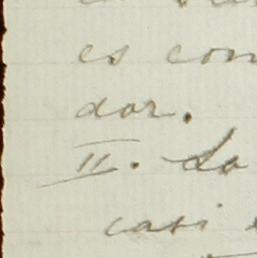 es con
dor.
II. Lo
casi